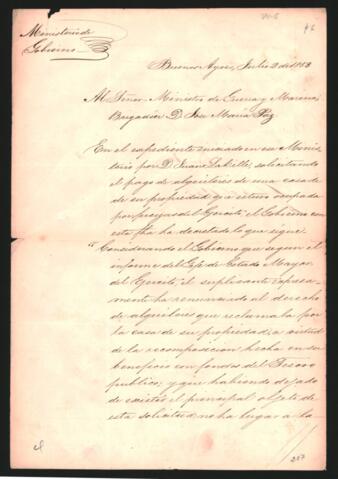 Ministerio de
Gobierno
Buenos Ayres, Julio 2 de 1853
Al Señor Ministro de Guerra y Marina,
Brigadier D. José María Paz
En el expediente iniciado en ese Minis
terio por D. Juan Labille, solicitando
el pago de alquileres de una casa de
de su propiedad que estuvo ocupada
por piezas del Ejército, el Gobierno con
esta fha ha decretado lo que sigue.
"Considerando el Gobierno que segun el
informe del Gefe de Estado Mayor
del Ejercito, el suplicante expresa-
mente ha renunciado al derecho
de alquileres que reclamaba por
la casa de su propiedad, a virtud
de la recomposicion hecha en su
beneficio con fondos del Tesoro
publico; y que habiendo dejado
de existir el principal objeto de
esta solicitud, no ha lugar a la
207